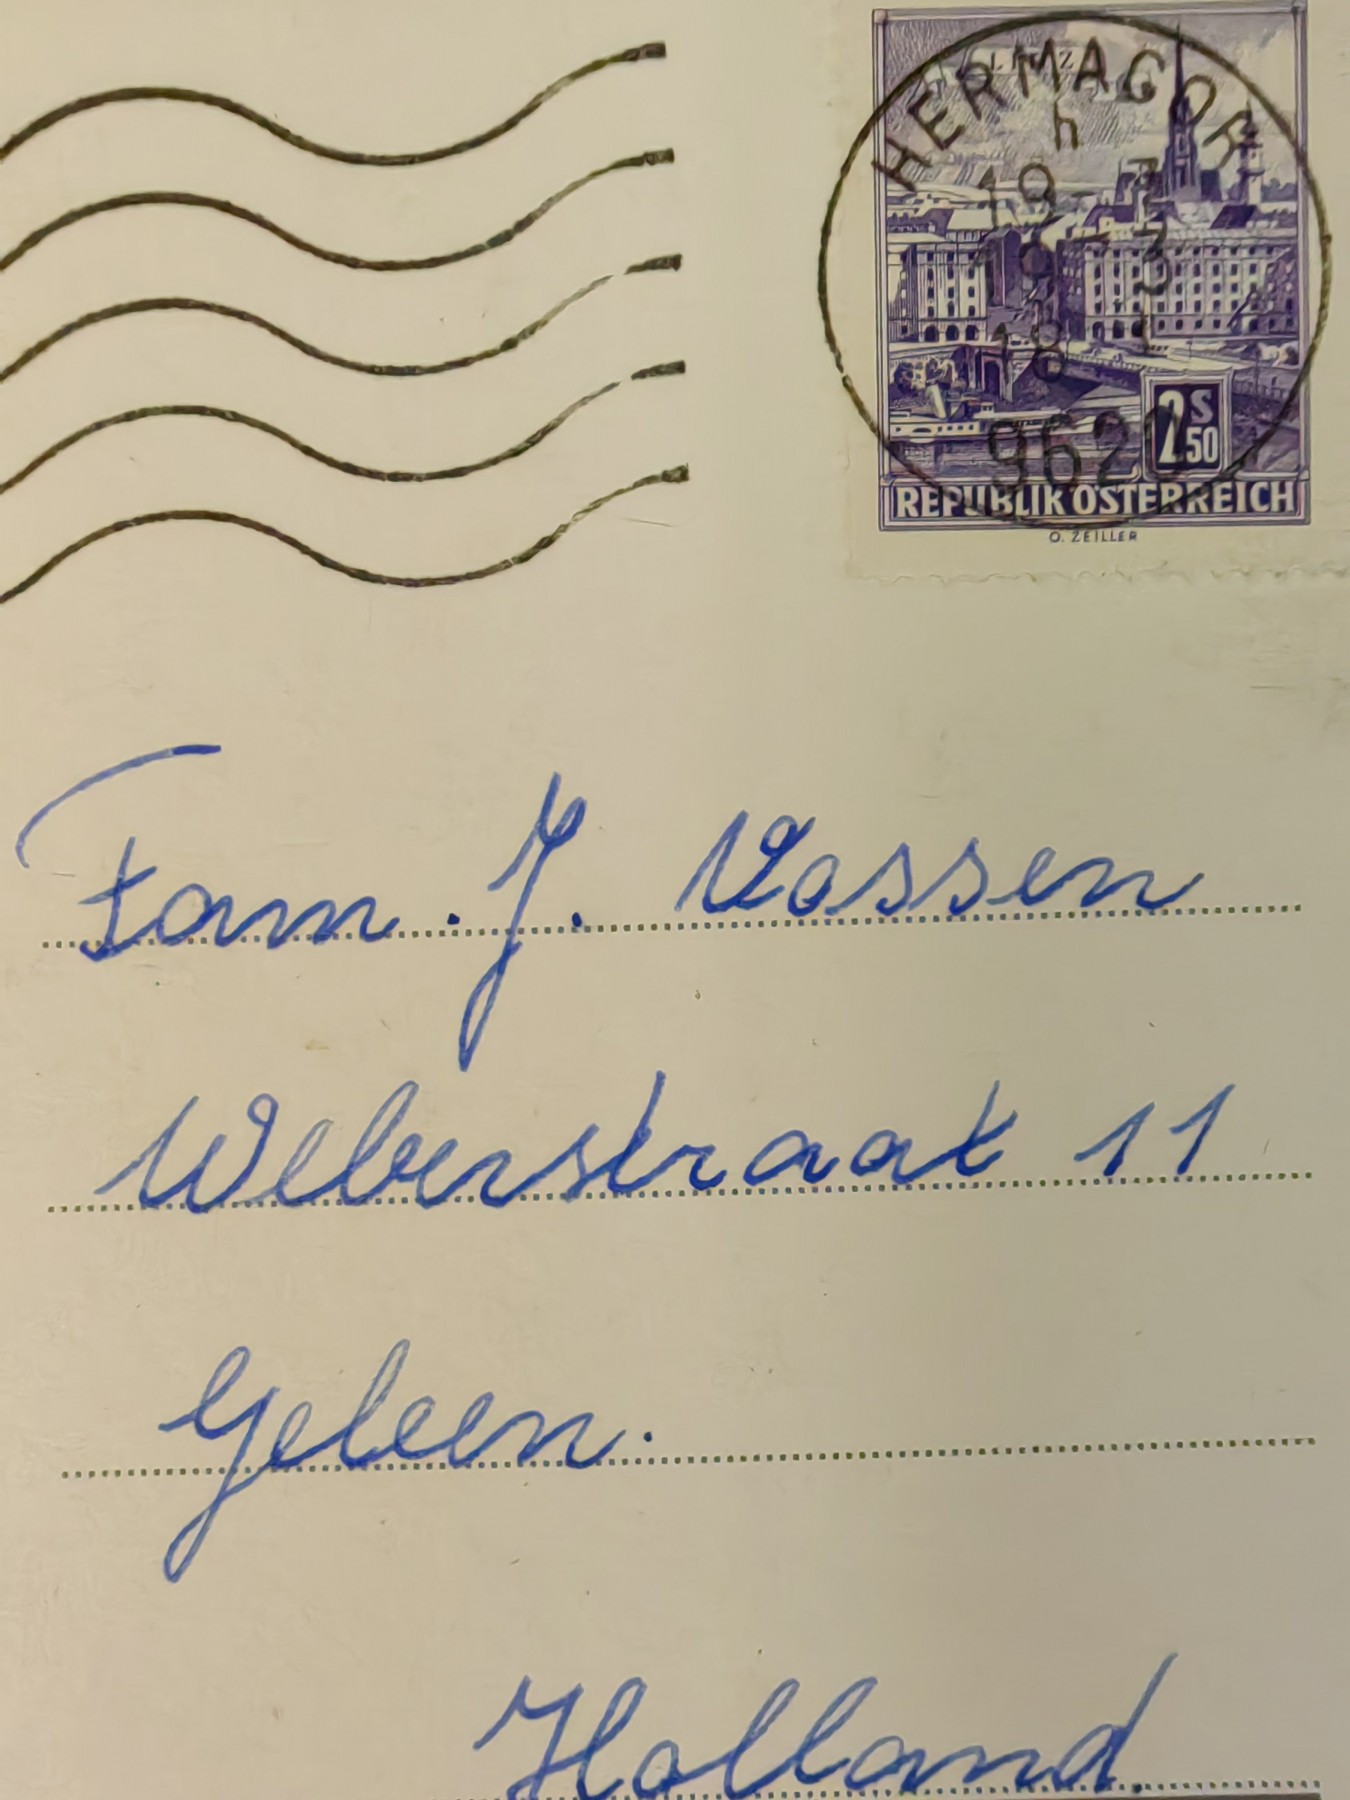 LINZ
HERMAGOR
h
19
18
9620
2S 50
REPUBLIK ÖSTERREICH
O. ZEILLER
Fam. J. Vossen
Weberstraat 11
Geleen.
Holland.